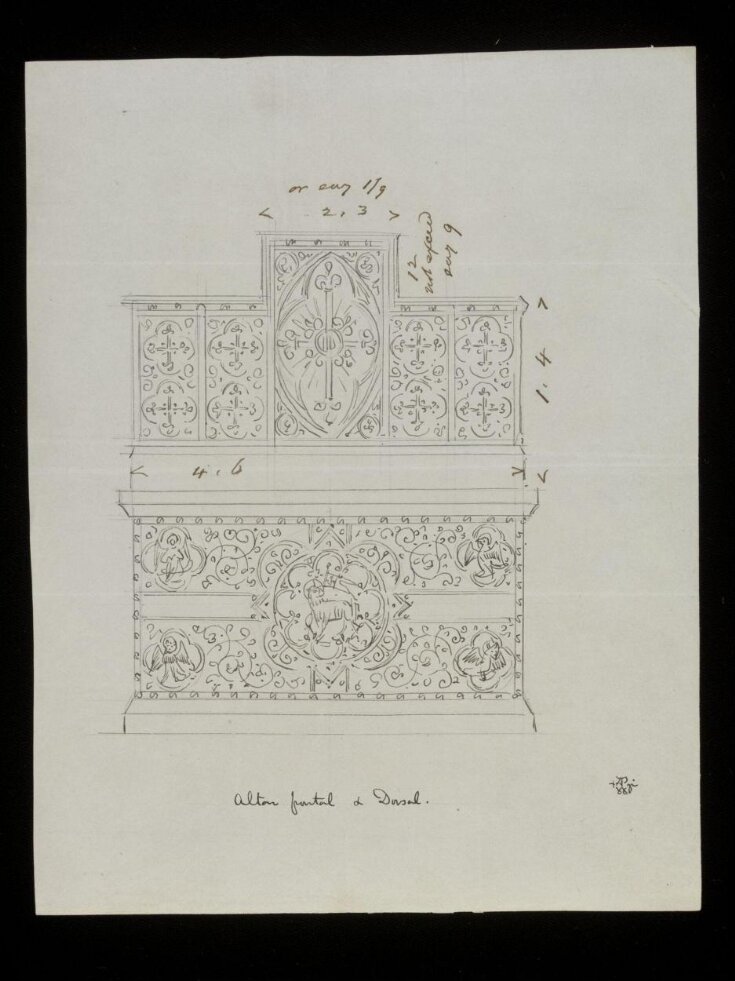 or say 1/9
2.3
12
not exceed
say 9
1.4
4.6
Altar frontal & Dorsal.